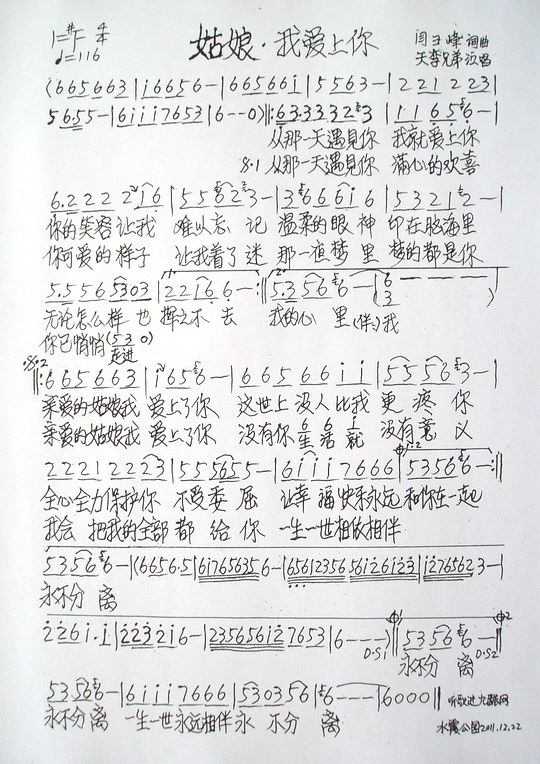 1=#F 4/4
♩=116
姑娘·我爱上你
闫子峰 词曲
天李兄弟 演唱
(665663|i6656-|66566i|5653-|221223|
5655-|6iii7653|6--0)‖:63.33323|11656-|
从那一天遇見你 我就爱上你
从那一天遇見你 满心的欢喜
6.2222i6|55623-|36666i6|53212-|
你的笑容让我 难以忘记 温柔的眼神 印在脑海里
你可爱的样子 让我着了迷 那一夜梦里 梦的都是你
5.5565303|22166-:‖5.3566-|6
无论怎么样也 挥之不去 我的心里(伴:)我
你已悄悄(530)
走进
‖:665663|i656-|66566ii|55563-|
亲爱的姑娘我 爱上了你 这世上没人比我 更疼你
亲爱的姑娘我 爱上了你 没有你生活就 没有意义
2221223|555655-|6iii7666|53566-:‖
全心全力保护你 不受委屈 让幸福快乐永远 和你在一起
我会把我的全部都给你 一生一世相依相伴
53566-|(6656.5|617656356-|6561235656i26i23|i2765623-|
永不分离
226i.i|2232i6-|2356561276 53|6---)‖53566-‖
D·S1 D·S2
永不分离
53566-|6iii7666|530356|6---|6000‖
听歌进九酷网
永不分离 一生一世永远相伴永 不分离
水震公园2011.12.22